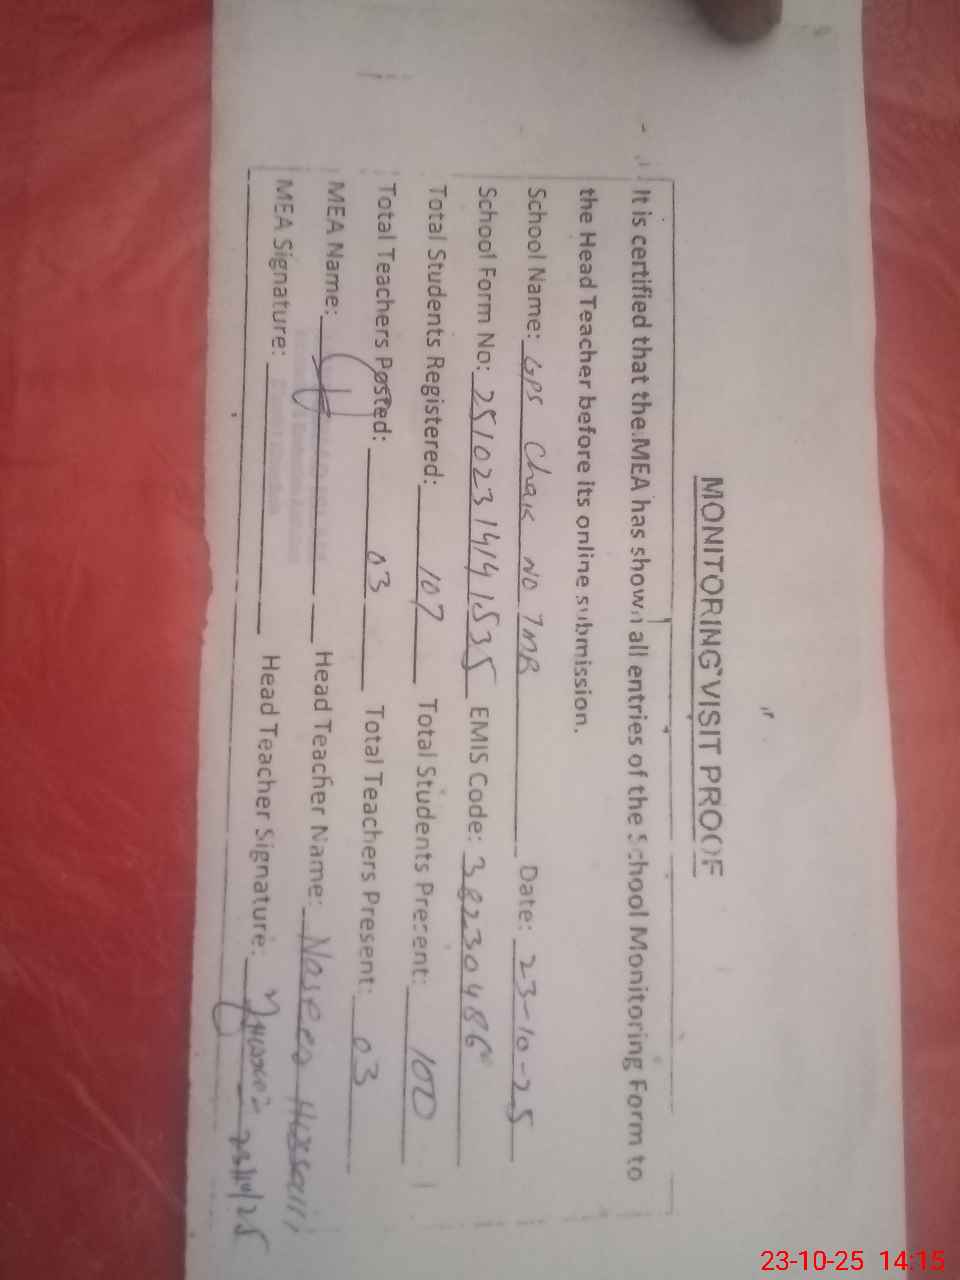 MONITORING VISIT PROOF
It is certified that the MEA has shown all entries of the School Monitoring Form to
the Head Teacher before its online submission.
School Name: GPS Chak No 7MB Date: 23-10-25
School Form No: 25102314141535 EMIS Code: 38230486
Total Students Registered: 107 Total Students Present: 100
Total Teachers Posted: 03 Total Teachers Present: 03
MEA Name: Head Teacher Name: Naseer Hussain
MEA Signature: Head Teacher Signature: 23/10/25
23-10-25 14:15